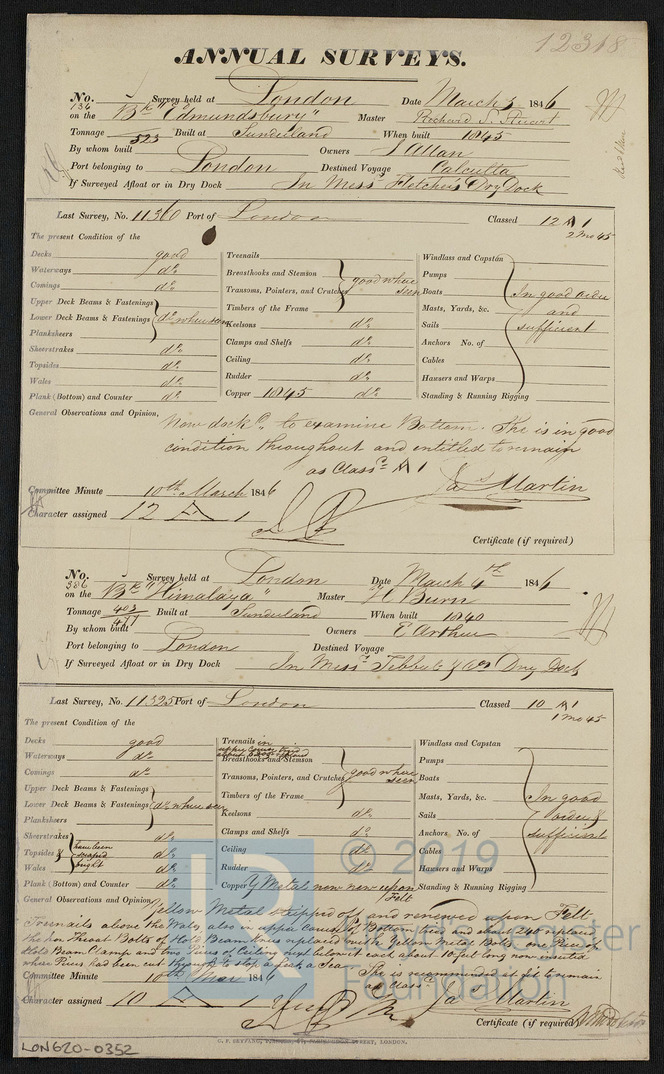 12318
ANNUAL SURVEYS.
No. 136 Survey held at London Date March 5 1846
on the Bk "Edmundsbury" Master Richard S. Stuart
Tonnage 523 Built at Sunderland When built 1845
By whom built Owners J Allan
Port belonging to London Destined Voyage Calcutta
If Surveyed Afloat or in Dry Dock In Messrs Fletcher's Dry Dock
Last Survey, No. 11360 Port of London Classed 12 A 1
2 Mo 45
The present Condition of the
Decks good
Waterways do
Comings do
Upper Deck Beams & Fastenings
Lower Deck Beams & Fastenings do where seen
Planksheers
Sheerstrakes do
Topsides do
Wales do
Plank (Bottom) and Counter do
Treenails
Breasthooks and Stemson good where
Transoms, Pointers, and Crutches seen
Timbers of the Frame
Keelsons do
Clamps and Shelfs do
Ceiling do
Rudder do
Copper 1845 do
Windlass and Capstan
Pumps
Boats In good order
Masts, Yards, &c. and
Sails sufficient
Anchors No. of
Cables
Hausers and Warps
Standing & Running Rigging
General Observations and Opinion,
Now dockd to examine Bottom. She is in good
condition throughout and entitled to remain
as Classd A 1
Jas Martin
Committee Minute 10th March 1846
Character assigned 12 A 1
Certificate (if required)
No. 386 Survey held at London Date March 4th 1846
on the Bk "Himalaya" Master H Burn
Tonnage 403/471 Built at Sunderland When built 1840
By whom built Owners E Arthur
Port belonging to London Destined Voyage
If Surveyed Afloat or in Dry Dock In Messrs Tebbut & Cos Dry Dock
Last Survey, No. 11325 Port of London Classed 10 A 1
1 Mo 45
The present Condition of the
Decks good
Waterways do
Comings do
Upper Deck Beams & Fastenings
Lower Deck Beams & Fastenings do where seen
Planksheers
Sheerstrakes do
Topsides & have been scraped bright do
Wales do
Plank (Bottom) and Counter do
Treenails in
upper Course
Breasthooks and Stemson
Transoms, Pointers, and Crutches good where seen
Timbers of the Frame
Keelsons do
Clamps and Shelfs do
Ceiling do
Rudder do
Copper Y Metal now new upon Felt
Windlass and Capstan
Pumps
Boats
Masts, Yards, &c. In good
Sails order &
Anchors No. of sufficient
Cables
Hausers and Warps
Standing & Running Rigging
General Observations and Opinion,
Yellow Metal stripped off and renewed upon Felt
Treenails above the Wales, also in upper Course of Bottom new and about 240 replaced
the iron Throat Bolts of Hold Beam knees replaced with Yellow Metal Bolts one Piece of
Hold Beam Clamp and two Pieces of Ceiling next below it each about 10 feet long now inserted
where Pieces had been cut
She is recommended as fit to remain
as Classd
Committee Minute 10th Mar 1846
Jas Martin
Character assigned 10 A 1
Certificate (if required)
LON620-0352
© 2019
Lloyd's Register
Foundation